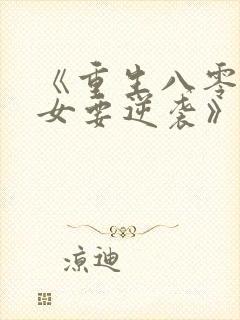 《重生八零
女要逆袭》
凉迪